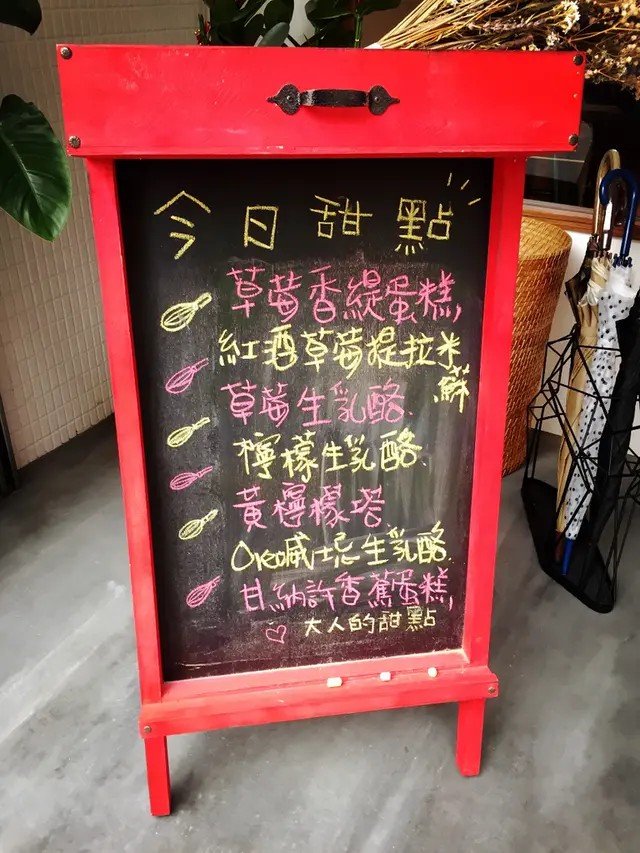 今日甜點
草莓香緹蛋糕
紅酒草莓提拉米蘇
草莓生乳酪
檸檬生乳酪
黃檸檬塔
Oreo威士忌生乳酪
甘納許香蕉蛋糕
大人的甜點